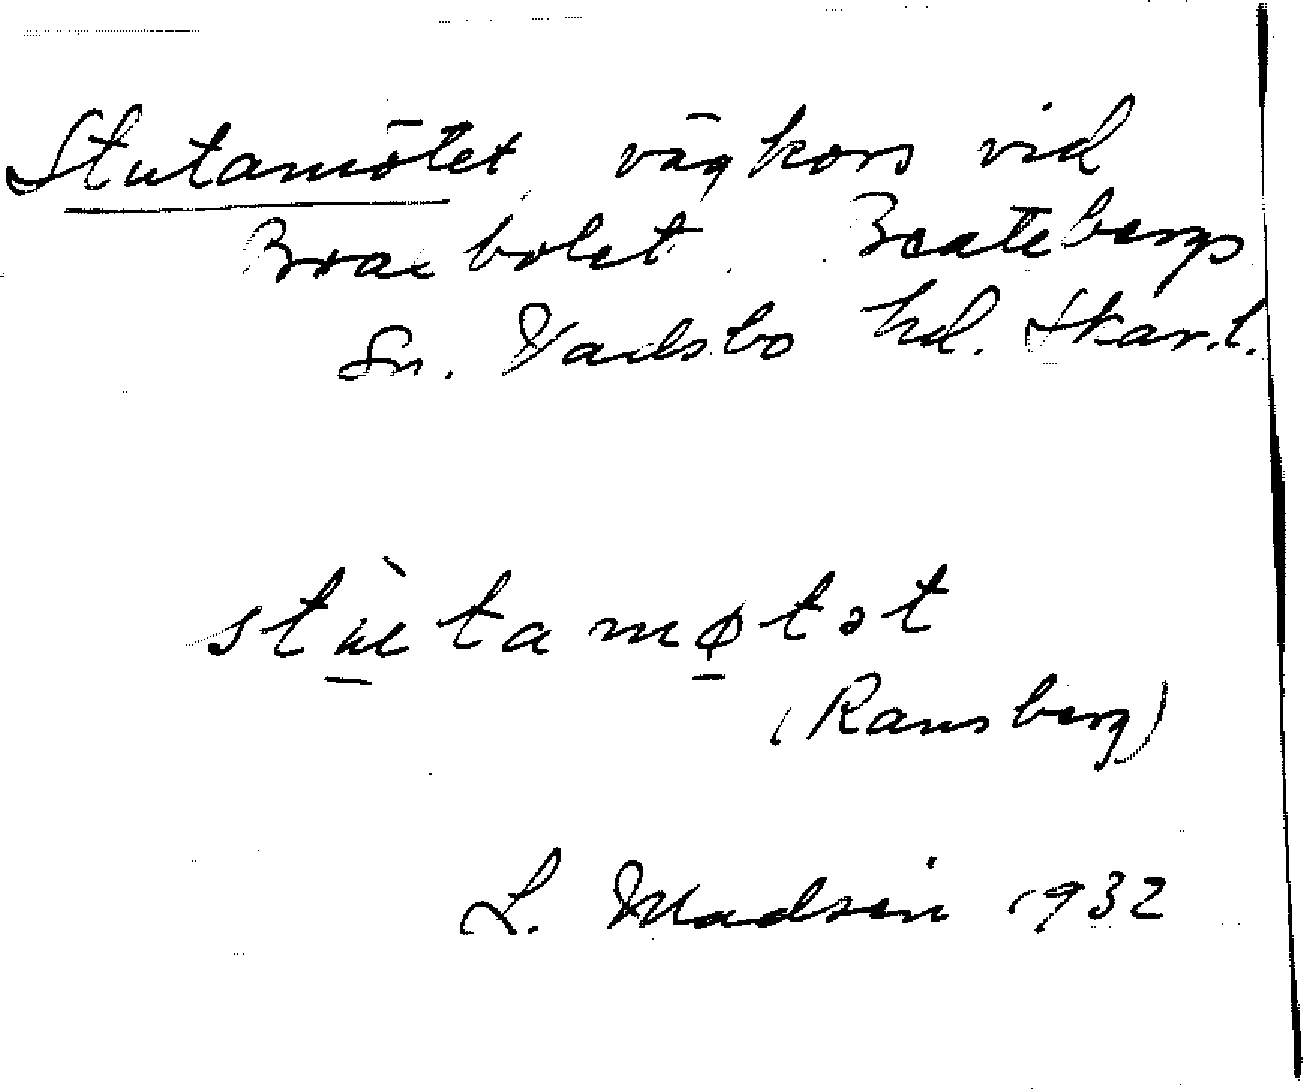 Stutamötet, vägkors vid
Broxebolet. Beatebergs
Sn. Vadsbo hd. Skar.l.
stùtamøtət
(Ransberg)
L. Madsén 1932